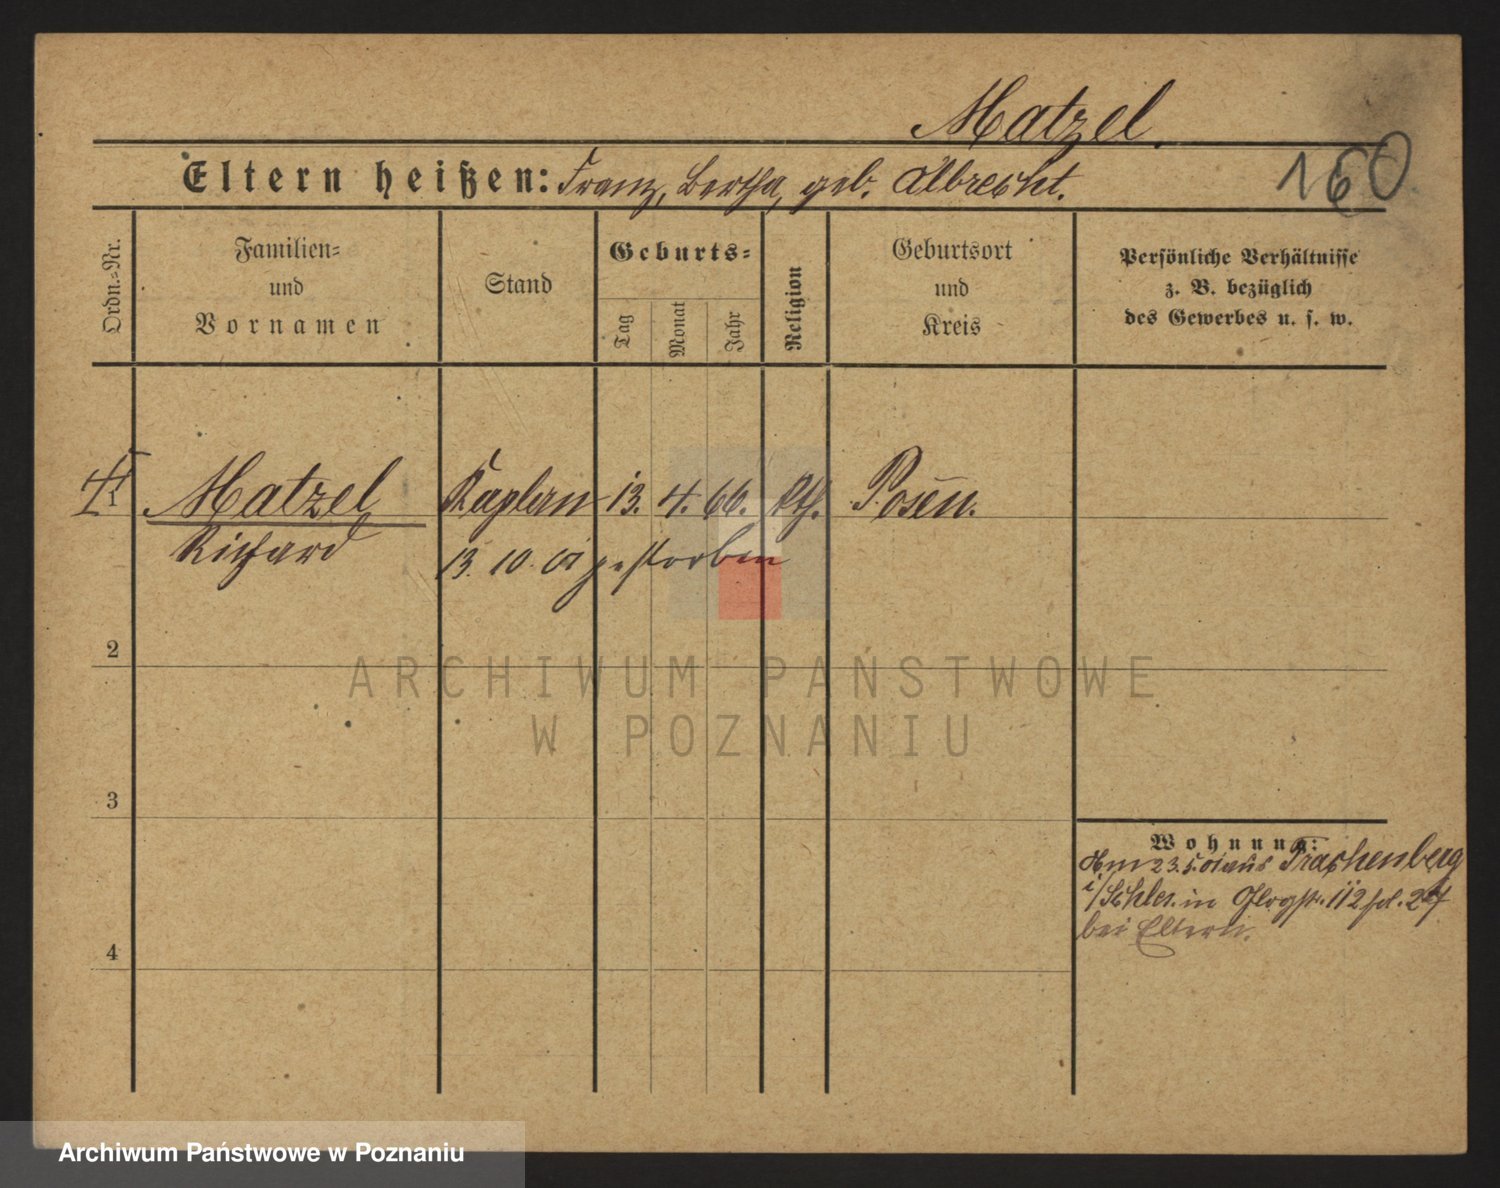 Matzel.
160
Eltern heißen: Franz, Bertha, geb. Albrecht.
Ordn.=Nr.
Familien=
und
Vornamen
Stand
Geburts=
Tag
Monat
Jahr
Religion
Geburtsort
und
Kreis
Persönliche Verhältnisse
z. B. bezüglich
des Gewerbes u. s. w.
1 Matzel Kaplan 13. 4. 66. kth. Posen.
Richard 13. 10. 01 gestorben
2
ARCHIWUM PAŃSTWOWE
W POZNANIU
3
Wohnung:
Am 23.5.01 aus Trachenberg
i/Schles. in 112 bei Eltern.
4
Archiwum Państwowe w Poznaniu